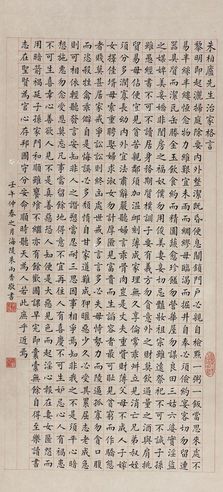 朱柏廬先生治家格言
黎明即起灑掃庭除要內外整潔既昏便息關鎖門戶必親自檢點一粥一飯當思來處不
易半絲半縷恆念物力維艱宜未雨而綢繆毋臨渴而掘井自奉必須儉約宴客切勿留連
器具質而潔瓦缶勝金玉飲食約而精園蔬愈珍饈勿營華屋勿謀良田三姑六婆實淫盜
之媒婢美妾嬌非閨房之福奴僕勿用俊美妻妾切忌豔妝祖宗雖遠祭祀不可不誠子孫
雖愚經書不可不讀居身務期質樸訓子要有義方勿貪意外之財莫飲過量之酒與肩挑
貿易毋佔便宜見貧苦親鄰須加溫卹刻薄成家理無久享倫常乖舛立見消亡兄弟叔姪
須分多潤寡長幼內外宜法肅辭嚴聽婦言乖骨肉豈是丈夫重貲財薄父母不成人子嫁
女擇佳婿毋索重聘娶媳求淑女勿計厚奩見富貴而生諂容者最可恥遇貧窮而作驕態
者賤莫甚居家戒爭訟訟則終凶處世戒多言言多必失毋恃勢力而凌逼孤寡勿貪口腹
而恣殺牲禽乖僻自是悔誤必多頹惰自甘家道難成狎暱惡少久必受其累屈志老成急
則可相依輕聽發言安知非人之譖愬當忍耐三思因事相爭焉知非我之不是須平心暗
想施惠勿念受恩莫忘凡事當留餘地得意不宜再往人有喜慶不可生妒忌心人有禍患
不可生喜幸心善欲人見不是真善惡恐人知便是大惡見色而起淫心報在妻女匿怨而
用暗箭禍延子孫家門和順雖饔飧不繼亦有餘歡國課早完即囊橐無餘自得至樂讀書
志在聖賢為官心存邦國守分安命順時聽天為人若此庶乎近焉
壬午仲春之月海陵朱雨青敬書